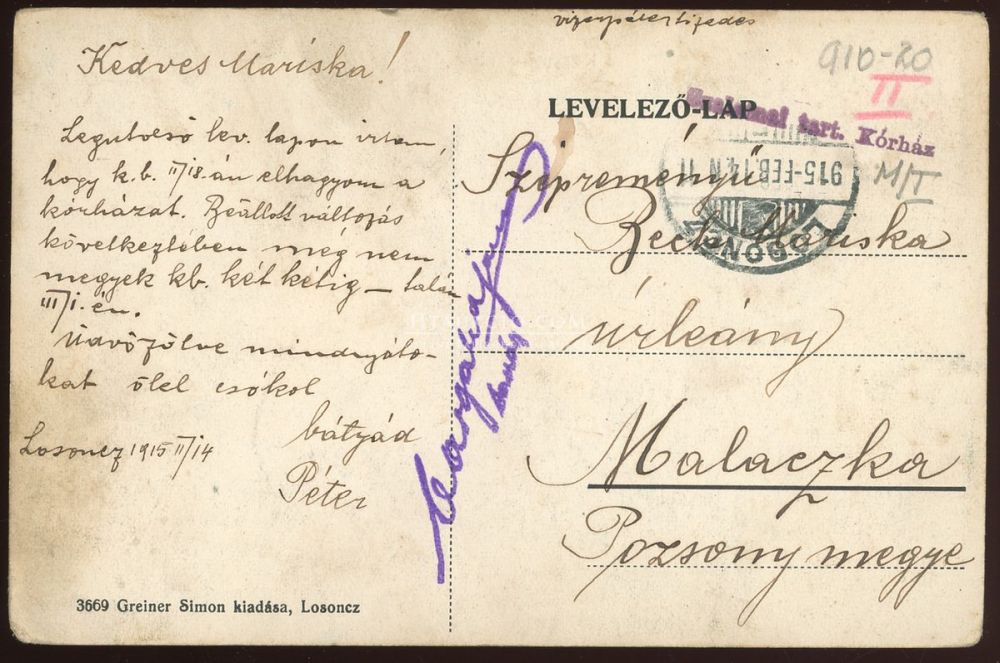 Kedves Mariska!
Legutolsó lev. lapon irtam,
hogy k.b. II/18.-án elhagyom a
kórházat. Beállott változás
következtében még nem
megyek kb. két hétig – talán
III/1.-én.
Üdvözölve mindnyájto-
kat ölel csókol
bátyád
Péter
Losoncz 1915 II/14
3669 Greiner Simon kiadása, Losoncz
910-20
II
M/T
LEVELEZŐ-LAP
tart. Kórház
915-FEB.14.N 11
LOSONCZ
Szépreményű
Beck Mariska
úrleány
Malaczka
Pozsony megye